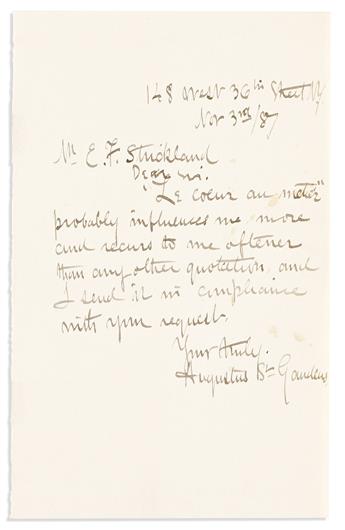 148 West 36th Street NY.
Nov 3rd/87
Mr E. F. Strickland
Dear Sir.
"Le coeur au metier"
probably influences me more
and recurs to me oftener
than any other quotation, and
I send it in compliance
with your request.
Yours truly.
Augustus St Gaudens